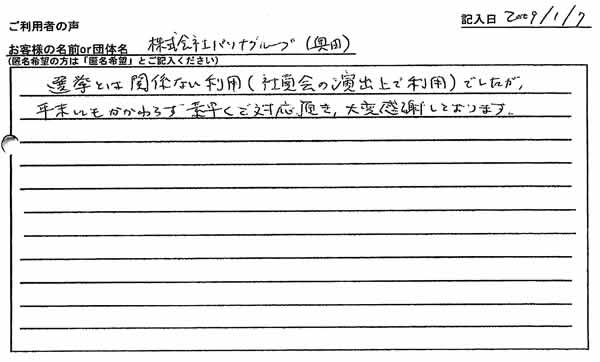 ご利用者の声
記入日 2009/1/7
お客様の名前or団体名 株式会社パソナグループ (奥田)
(匿名希望の方は「匿名希望」とご記入ください)
選挙とは関係ない利用(社員会の演出上で利用)でしたが、
年末にもかかわらず素早くご対応頂き、大変感謝しております。